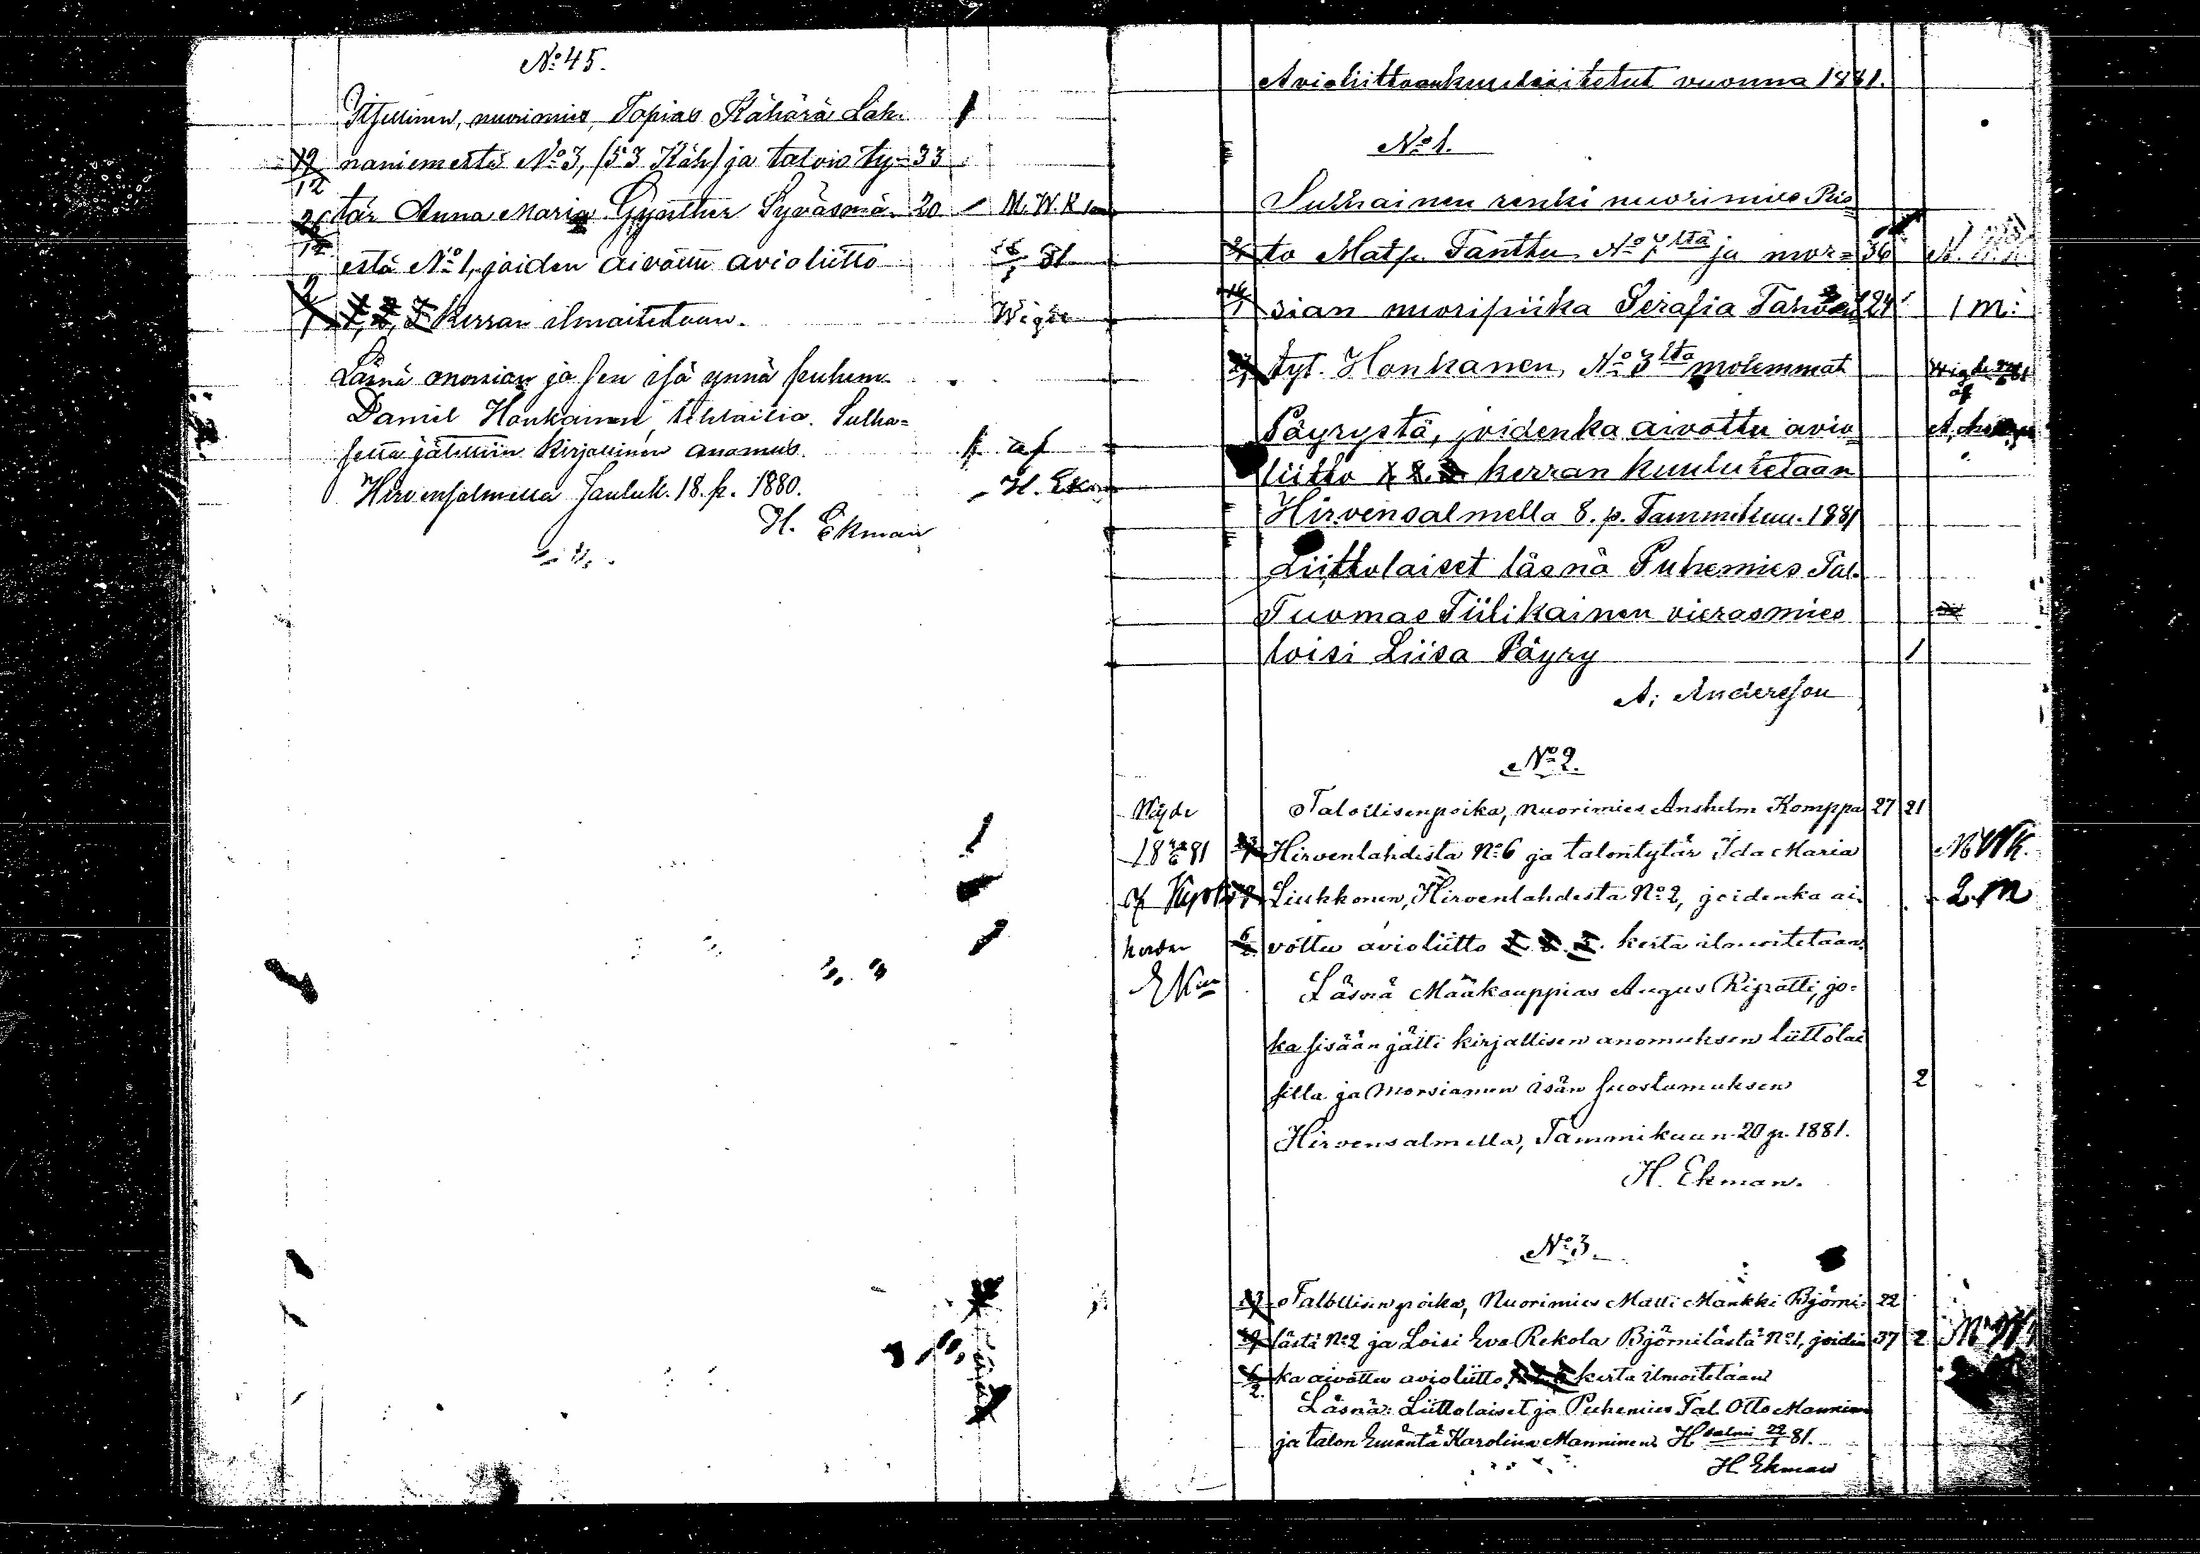 No 45.
Itsellinen, nuorimies, Topias Kähärä Lah-
19/12 naniemestä No 3, (53 Käh) ja talvis ty- 33
26/12 tär Anna Maria Gynther Syväsmä- 20 M.W.K
estä No 1, joiden aivottu avioliitto 81
2/1 kerran ilmoitetaan. Wigde
Läsnä morsian ja sen isä ynnä puhem.
Daniel Honkanen, tehtailia. Sulha-
selta jätettiin kirjallinen anomus. af
Hirvensalmella Jouluk. 18. p. 1880. H. Ekm
H. Ekman
Avioliittoonkuulutetut vuonna 1881.
No 1.
Sulhainen renki nuorimies Ris-
to Matp. Tanttu No 7ltä ja mor- 36
16/1 sian nuoripiika Serafia 24 1 m:
tyt. Honkanen, No 3lta molemmat
Päyrystä, joidenka aivottu avio-
liitto kerran kuulutetaan
Hirvensalmella 8. p. Tammikuu. 1881
Liittolaiset läsnä Puhemies Tal.
Tuomas Tiilikainen vierasmies
loisi Liisa Päyry 1
A. Andersson
No 2.
Wigde Talollisenpoika, nuorimies Anshelm Komppa 27 21
18 81 23/1 Hirvenlahdista No 6 ja talontytär Ida Maria MWK.
af Liukkonen, Hirvenlahdesta No 2, joidenka ai- 2 m
6/2 vottu avioliitto kerta ilmoitetaan
Ekm Läsnä Maakauppias Augus Ripatti, jo-
ka sisään jätti kirjallisen anomuksen liittolai
silla ja morsiamen isän suostumuksen 2
Hirvensalmella, Tammikuun 20 p. 1881.
H. Ekman.
No 3
23/1 Talollisenpoika, Nuorimies Matti Mankki Björni- 22
lästä No 2 ja Loisi Eva Rekola Björnilästä No 1, joiden 37 2
6/2 ka aivottu avioliitto kerta ilmoitetaan
Läsnä: Liittolaiset ja Puhemies Tal. Otto Manninen
ja talon Emäntä Karolina Manninen. Hsalmi 22/1 81.
H. Ekman